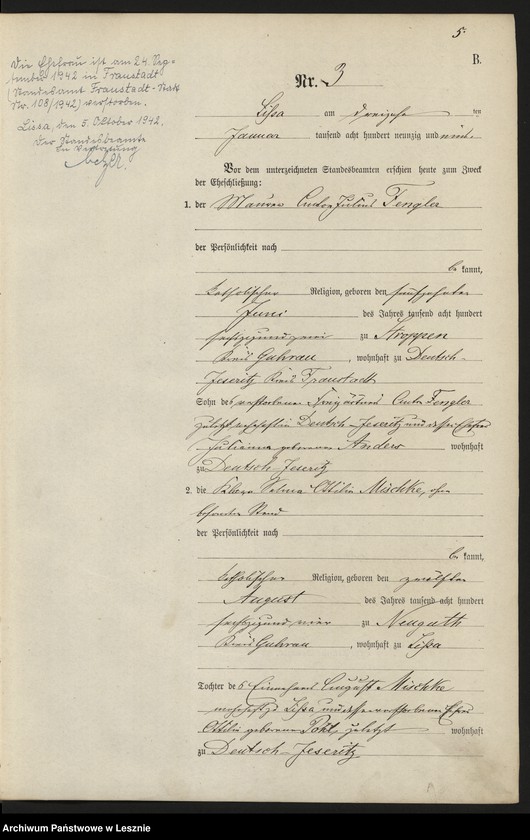 5.
B.
Die Ehefrau ist am 24. Sep-
tember 1942 in Fraustadt
(Standesamt Fraustadt-Stadt
Nr. 108/1942) verstorben.
Lissa, den 5. Oktober 1942.
Der Standesbeamte
In Vertretung
Nr. 3
Lissa am dreizehn ten
Januar tausend acht hundert neunzig und neun.
Vor dem unterzeichneten Standesbeamten erschien heute zum Zweck
der Eheschließung:
1. der Maurer Julius Fengler
der Persönlichkeit nach
be kannt,
katholischer Religion, geboren den fünfzehnten
Juni des Jahres tausend acht hundert
sechszig und zwei zu Stroppen
Kreis Guhrau, wohnhaft zu Deutsch-
Jeseritz Kreis Fraustadt
Sohn des verstorbenen Fengler
zuletzt wohnhaft in Deutsch-Jeseritz und dessen Ehefrau
Julianna geborenen Anders wohnhaft
zu Deutsch Jeseritz
2. die Klara Selma Ottilie Mischke, ohne
besonderen Stand
der Persönlichkeit nach
be kannt,
katholischer Religion, geboren den zwölften
August des Jahres tausend acht hundert
sechszig und vier zu Neuguth
Kreis Guhrau, wohnhaft zu Lissa
Tochter des August Mischke
wohnhaft zu Lissa und dessen verstorbenen Ehefrau
Ottilie geborenen Pohl, zuletzt wohnhaft
zu Deutsch-Jeseritz
Archiwum Państwowe w Lesznie
szukajwarchiwach.gov.pl